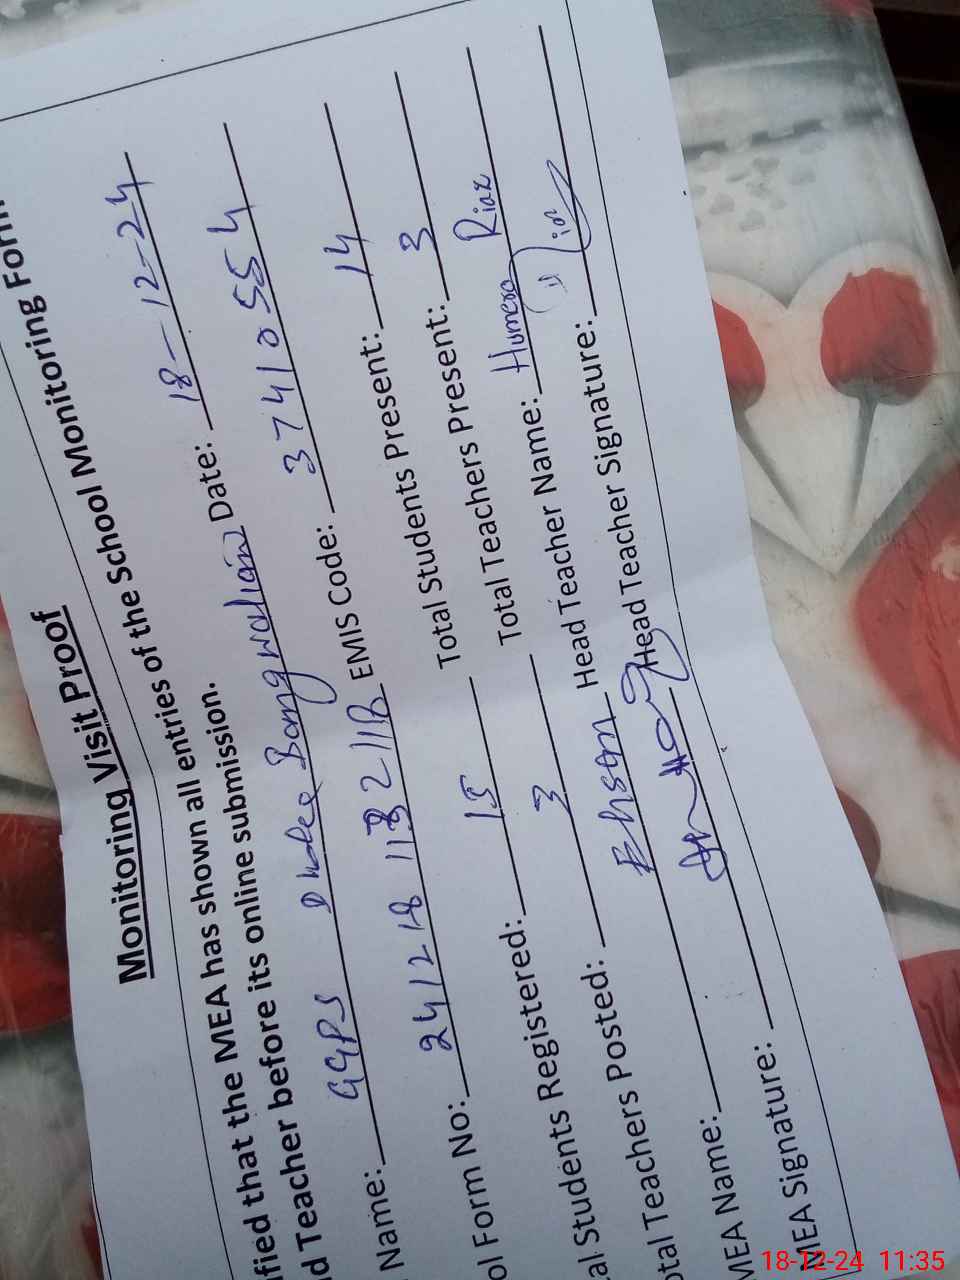 Monitoring Visit Proof
fied that the MEA has shown all entries of the School Monitoring Form
d Teacher before its online submission.
Date: 18-12-24
Name: GGPS Dhoke Bangwalian EMIS Code: 37410554
ol Form No: 241218 11 211B Total Students Present: 14
al Students Registered: 15 Total Teachers Present: 3
otal Teachers Posted: 3 Head Teacher Name: Humera Riaz
MEA Name: Ehsan Head Teacher Signature:
MEA Signature:
18-12-24 11:35